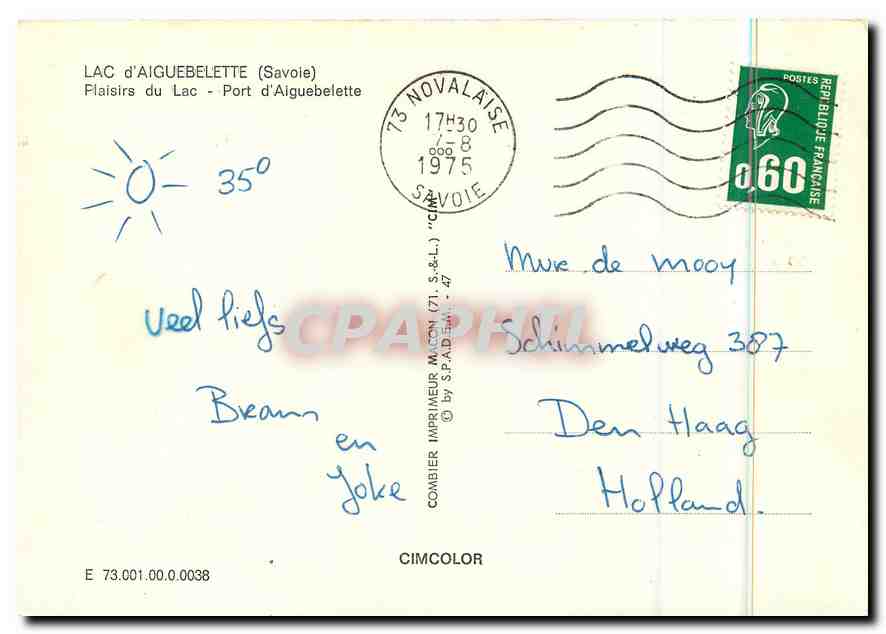 LAC d'AIGUEBELETTE (Savoie)
Plaisirs du Lac - Port d'Aiguebelette
73 NOVALAISE
17H30
7-8
1975
SAVOIE
POSTES
REPUBLIQUE FRANÇAISE
0,60
35°
Veel liefs
Bram
en
Joke
COMBIER IMPRIMEUR MACON (71. S.-&-L.) "CIM"
© by S.P.A.D.E.M. - 47
CPAPHIL
de mooy
Schimmelweg 387
Den Haag
Holland.
CIMCOLOR
E 73.001.00.0.0038